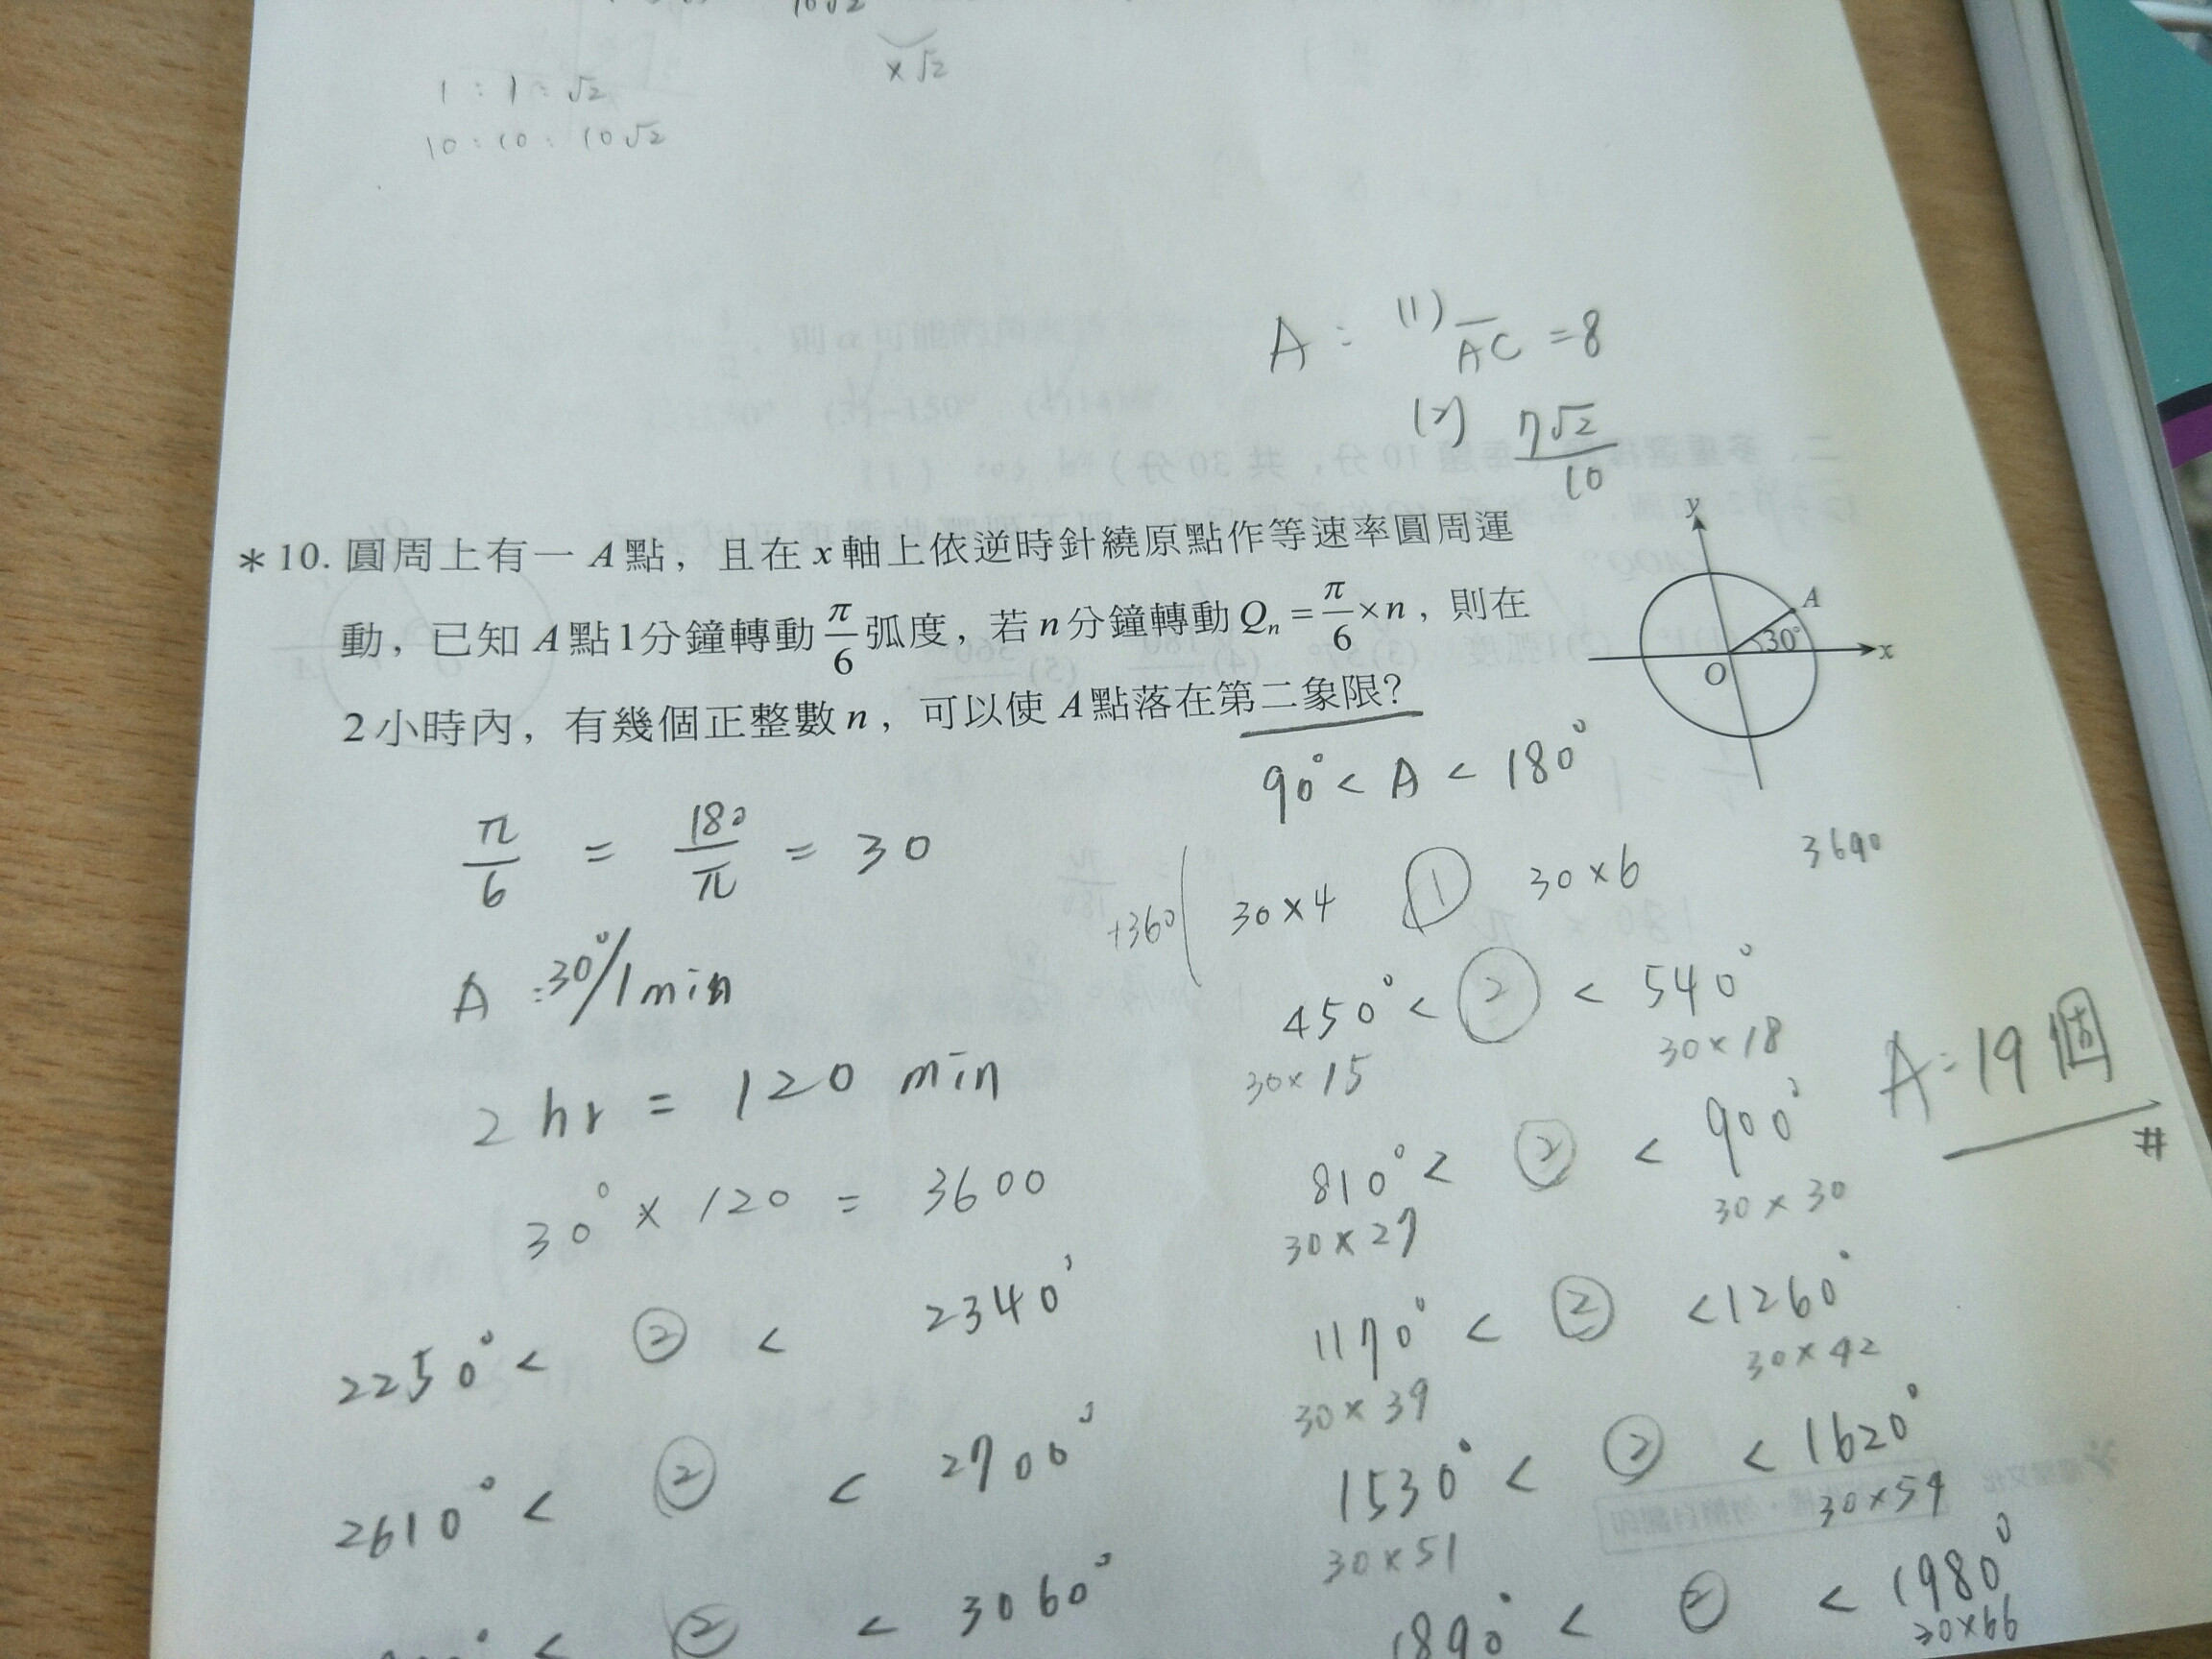 10√2
x√2
1 : 1 : √2
10 : 10 : 10√2
A : (1) AC = 8
(2) 7√2/10
*10. 圓周上有一 A 點，且在 x 軸上依逆時針繞原點作等速率圓周運
動，已知 A 點 1 分鐘轉動 π/6 弧度，若 n 分鐘轉動 Qn = π/6 × n，則在
2 小時內，有幾個正整數 n，可以使 A 點落在第二象限？
y
A
30°
x
O
90° < A < 180°
π/6 = 180/π = 30
A : 30°/1 min
2 hr = 120 min
30° × 120 = 3600
2250° < ② < 2340°
2610° < ② < 2700°
< ② < 3060°
3690
+360
30×4 ① 30×6
450° < ② < 540°
30×15 30×18
810° < ② < 900°
30×27 30×30
1170° < ② < 1260°
30×39 30×42
1530° < ② < 1620°
30×51 30×54
1890° < ② < 1980°
30×66
A = 19 個
#